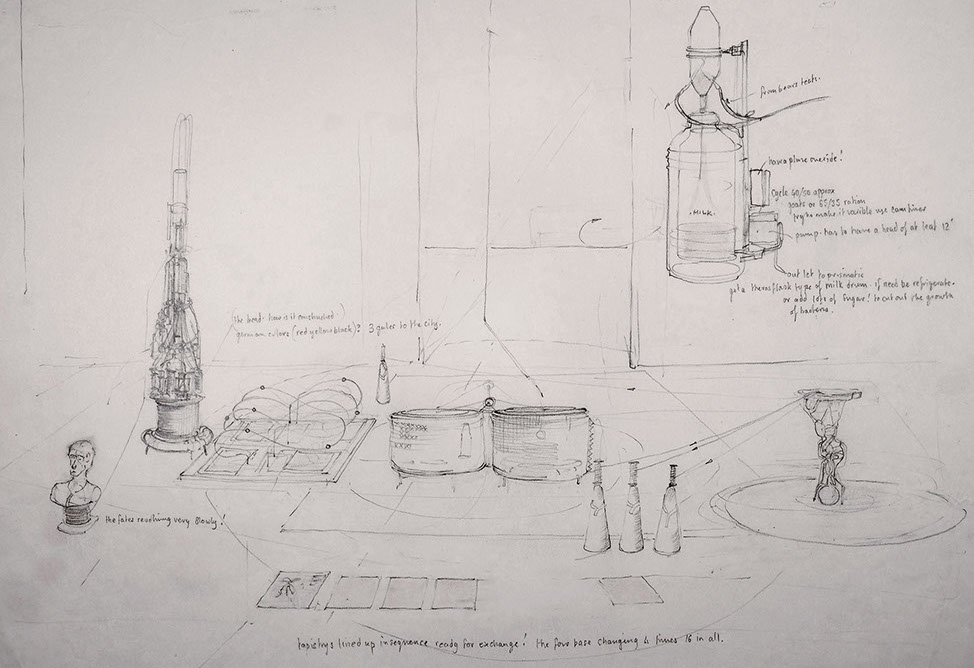 from bears teats.
have a pluse overide!
Cycle 40/60 approx
parts or 65/35 ration
try to make it varible use cam timer
pump has to have a head of at least 12"
.MILK.
out let to prismatic
get a thermoflask type of milk drum if need be refrigerate.
or add lots of sugar! to cut out the growth
of bacteria.
the bend how is it constructed
german colours (red yellow black)? 3 gates to the city.
the fates revolving very slowly!
tapistrys lined up in sequence ready for exchange! the four base changing 4 times 16 in all.